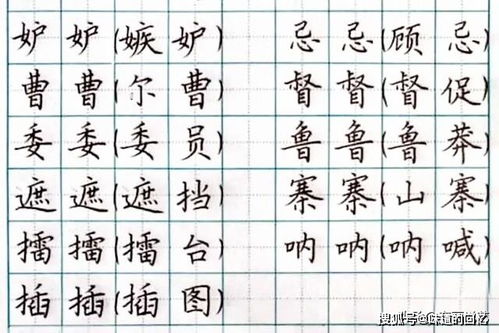 妒 妒(嫉 妒) 忌 忌(顾 忌)
曹 曹(尔 曹) 督 督(督 促)
委 委(委 员) 鲁 鲁(鲁 莽)
遮 遮(遮 挡) 寨 寨(山 寨)
擂 擂(擂 台) 呐 呐(呐 喊)
插 插(插 图)
搜狐号@味道的回忆